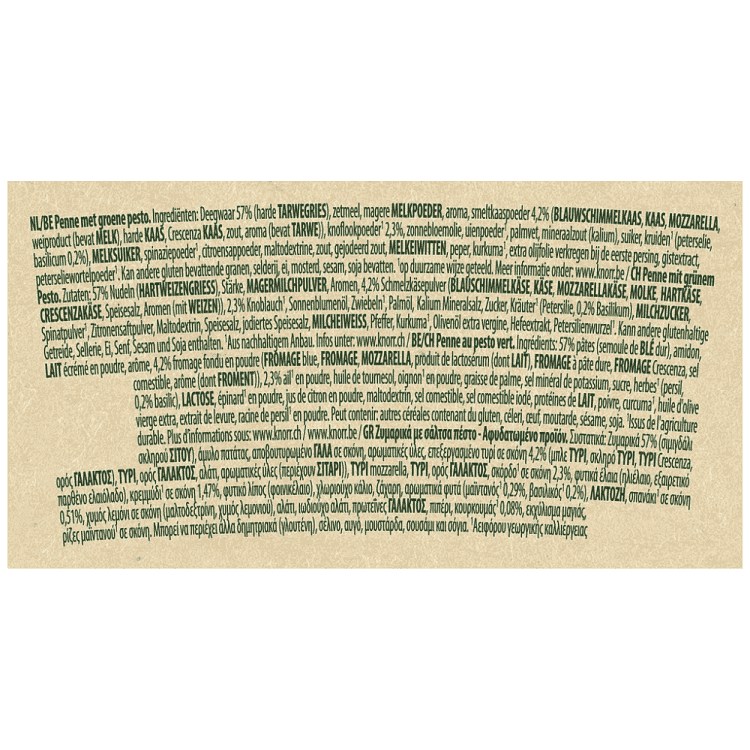 NL/BE Penne met groene pesto. Ingrediënten: Deegwaar 57% (harde TARWEGRIES), zetmeel, magere MELKPOEDER, aroma, smeltkaaspoeder 4,2% (BLAUWSCHIMMELKAAS, KAAS, MOZZARELLA,
weiproduct (bevat MELK), harde KAAS, Crescenza KAAS, zout, aroma (bevat TARWE)), knoflookpoeder¹ 2,3%, zonnebloemolie, uienpoeder¹, palmvet, mineraalzout (kalium), suiker, kruiden¹ (peterselie,
basilicum 0,2%), MELKSUIKER, spinaziepoeder¹, citroensappoeder, maltodextrine, zout, gejodeerd zout, MELKEIWITTEN, peper, kurkuma¹, extra olijfolie verkregen bij de eerste persing, gistextract,
peterseliewortelpoeder¹. Kan andere gluten bevattende granen, selderij, ei, mosterd, sesam, soja bevatten. ¹op duurzame wijze geteeld. Meer informatie onder: www.knorr.be / CH Penne mit grünem
Pesto. Zutaten: 57% Nudeln (HARTWEIZENGRIESS), Stärke, MAGERMILCHPULVER, Aromen, 4,2% Schmelzkäsepulver (BLAUSCHIMMELKÄSE, KÄSE, MOZZARELLAKÄSE, MOLKE, HARTKÄSE,
CRESCENZAKÄSE, Speisesalz, Aromen (mit WEIZEN)), 2,3% Knoblauch¹, Sonnenblumenöl, Zwiebeln¹, Palmöl, Kalium Mineralsalz, Zucker, Kräuter¹ (Petersilie, 0,2% Basilikum), MILCHZUCKER,
Spinatpulver¹, Zitronensaftpulver, Maltodextrin, Speisesalz, jodiertes Speisesalz, MILCHEIWEISS, Pfeffer, Kurkuma¹, Olivenöl extra vergine, Hefeextrakt, Petersilienwurzel¹. Kann andere glutenhaltige
Getreide, Sellerie, Ei, Senf, Sesam und Soja enthalten. ¹Aus nachhaltigem Anbau. Infos unter: www.knorr.ch / BE/CH Penne au pesto vert. Ingrédients: 57% pâtes (semoule de BLÉ dur), amidon,
LAIT écrémé en poudre, arôme, 4,2% fromage fondu en poudre (FROMAGE bleu, FROMAGE, MOZZARELLA, produit de lactosérum (dont LAIT), FROMAGE à pâte dure, FROMAGE Crescenza, sel
comestible, arôme (dont FROMENT)), 2,3% ail¹ en poudre, huile de tournesol, oignon¹ en poudre, graisse de palme, sel minéral de potassium, sucre, herbes¹ (persil,
0,2% basilic), LACTOSE, épinard¹ en poudre, jus de citron en poudre, maltodextrin, sel comestible, sel comestible iodé, protéines de LAIT, poivre, curcuma¹, huile d'olive
vierge extra, extrait de levure, racine de persil¹ en poudre. Peut contenir: autres céréales contenant du gluten, céleri, œuf, moutarde, sésame, soja. ¹Issus de l'agriculture
durable. Plus d'informations sous: www.knorr.ch / www.knorr.be / GR Ζυμαρικά με σάλτσα πέστο - Αφυδατωμένο προϊόν. Συστατικά: Ζυμαρικά 57% (σιμιγδάλι
σκληρού ΣΙΤΟΥ), άμυλο πατάτας, αποβουτυρωμένο ΓΑΛΑ σε σκόνη, αρωματικές ύλες, επεξεργασμένο τυρί σε σκόνη 4,2% (μπλέ ΤΥΡΙ, σκληρό ΤΥΡΙ, ΤΥΡΙ Crescenza,
ορός ΓΑΛΑΚΤΟΣ), ΤΥΡΙ, ορός ΓΑΛΑΚΤΟΣ, αλάτι, αρωματικές ύλες (περιέχουν ΣΙΤΑΡΙ)), ΤΥΡΙ mozzarella, ΤΥΡΙ, ορός ΓΑΛΑΚΤΟΣ, σκόρδο¹ σε σκόνη 2,3%, φυτικά έλαια (ηλιέλαιο, εξαιρετικό
παρθένο ελαιόλαδο), κρεμμύδι¹ σε σκόνη 1,47%, φυτικό λίπος (φοινικέλαιο), χλωριούχο κάλιο, ζάχαρη, αρωματικά φυτά (μαϊντανός¹ 0,29%, βασιλικός¹ 0,2%), ΛΑΚΤΟΖΗ, σπανάκι¹ σε σκόνη
0,51%, χυμός λεμόνι σε σκόνη (μαλτοδεξτρίνη, χυμός λεμονιού), αλάτι, ιωδιούχο αλάτι, πρωτεΐνες ΓΑΛΑΚΤΟΣ, πιπέρι, κουρκουμάς¹ 0,08%, εκχύλισμα μαγιάς,
ρίζες μαϊντανού¹ σε σκόνη. Μπορεί να περιέχει άλλα δημητριακά (γλουτένη), σέλινο, αυγό, μουστάρδα, σουσάμι και σόγια. ¹Αειφόρου γεωργικής καλλιέργειας